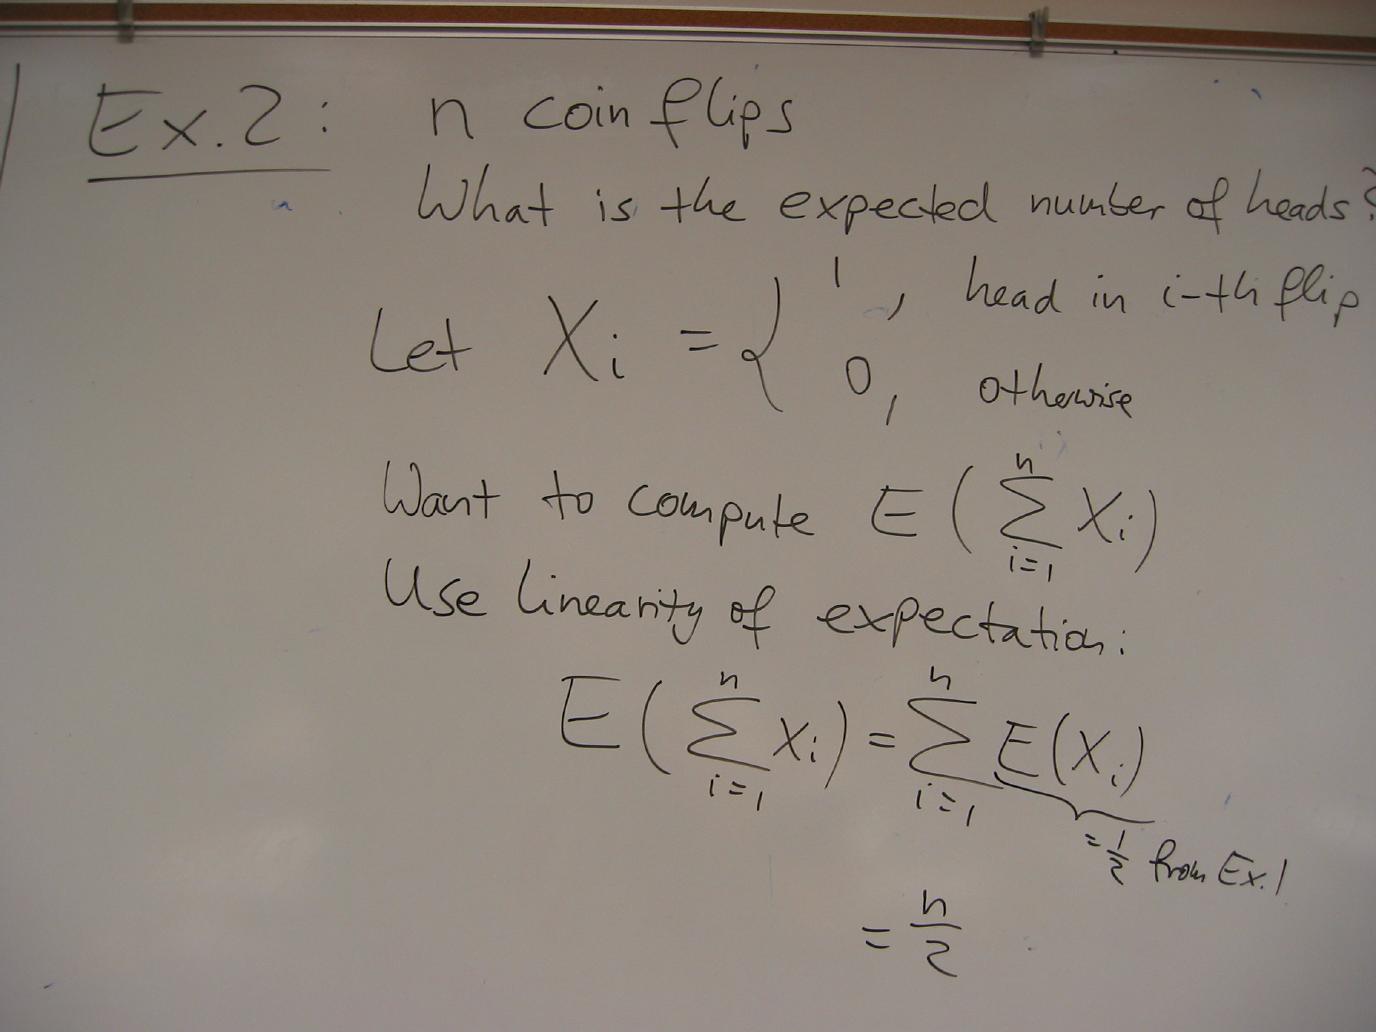 Ex.2: n coin flips
What is the expected number of heads?
Let Xi = { 1, head in i-th flip
0, otherwise
Want to compute E(∑_{i=1}^{n} Xi)
Use linearity of expectation:
E(∑_{i=1}^{n} Xi) = ∑_{i=1}^{n} E(Xi)
= 1/2 from Ex.1
= n/2